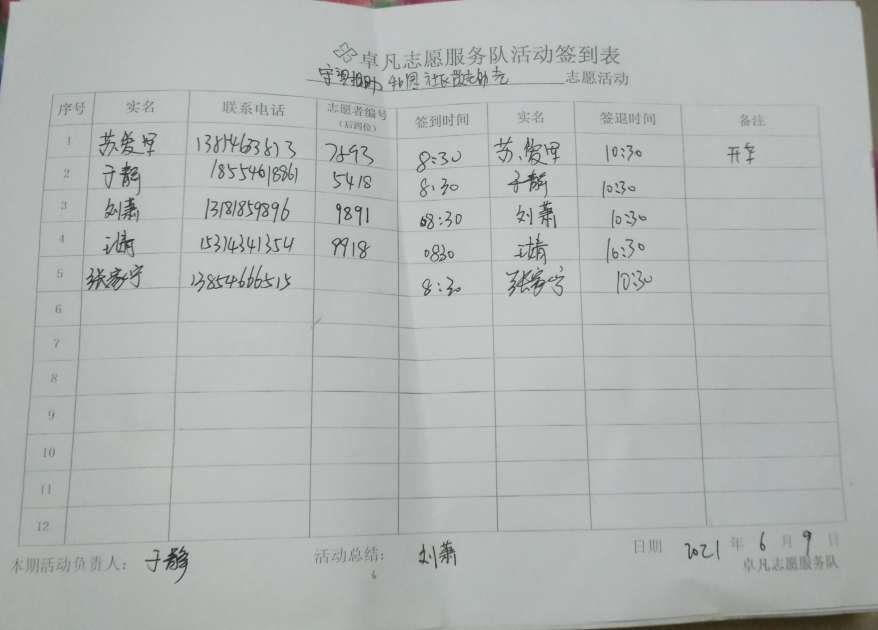 卓凡志愿服务队活动签到表
守望相助 志愿活动
序号 实名 联系电话 志愿者编号(后四位) 签到时间 实名 签退时间 备注
1 苏爱军 7593 8:30 苏爱军 10:30 开车
2 于静 18554618861 5418 8:30 于静 10:30
3 刘萧 13181859896 9891 08:30 刘萧 10:30
4 王靖 15314341354 9918 0830 王靖 10:30
5 张家宁 13854666515 8:30 张家宁 10:30
6
7
8
9
10
11
12
本期活动负责人: 于静 活动总结: 刘萧 日期 2021 年 6 月 9 日
卓凡志愿服务队